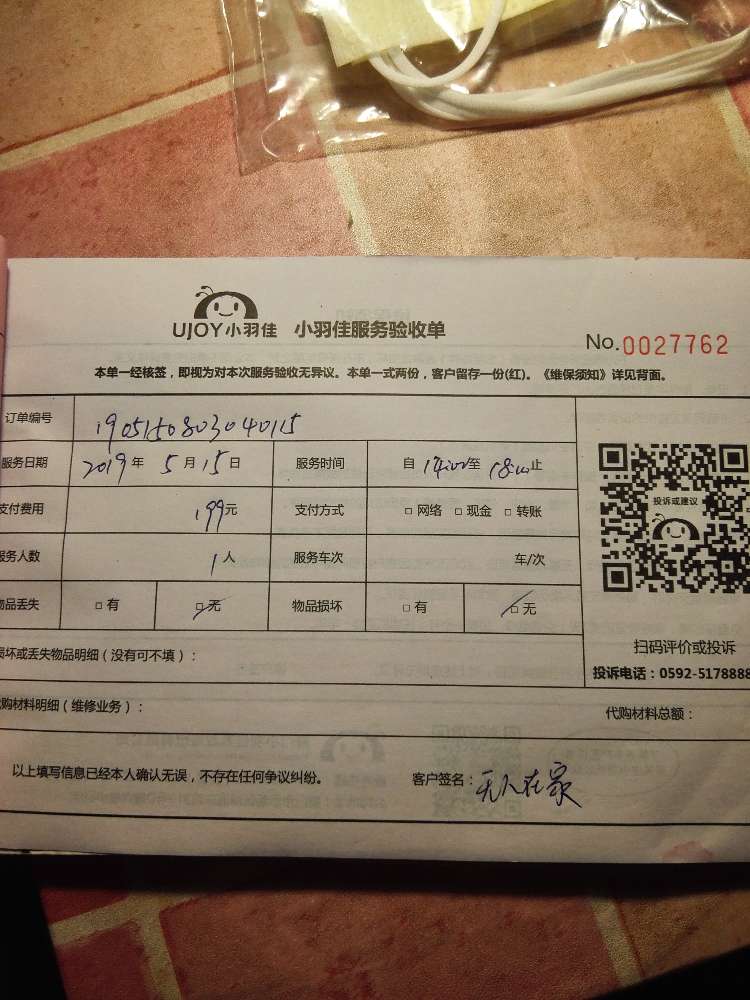 UJOY小羽佳 小羽佳服务验收单
No.0027762
本单一经核签，即视为对本次服务验收无异议。本单一式两份，客户留存一份(红)。《维保须知》详见背面。
订单编号 1905150803040115
服务日期 2019年5月15日 服务时间 自14:00至18:00止
支付费用 199元 支付方式 □ 网络 □ 现金 □ 转账
服务人数 1人 服务车次 车/次
物品丢失 □ 有 □ 无 物品损坏 □ 有 □ 无
投诉或建议
扫码评价或投诉
投诉电话：0592-5178888
损坏或丢失物品明细（没有可不填）：
代购材料明细（维修业务）： 代购材料总额：
以上填写信息已经本人确认无误，不存在任何争议纠纷。 客户签名：无人在家